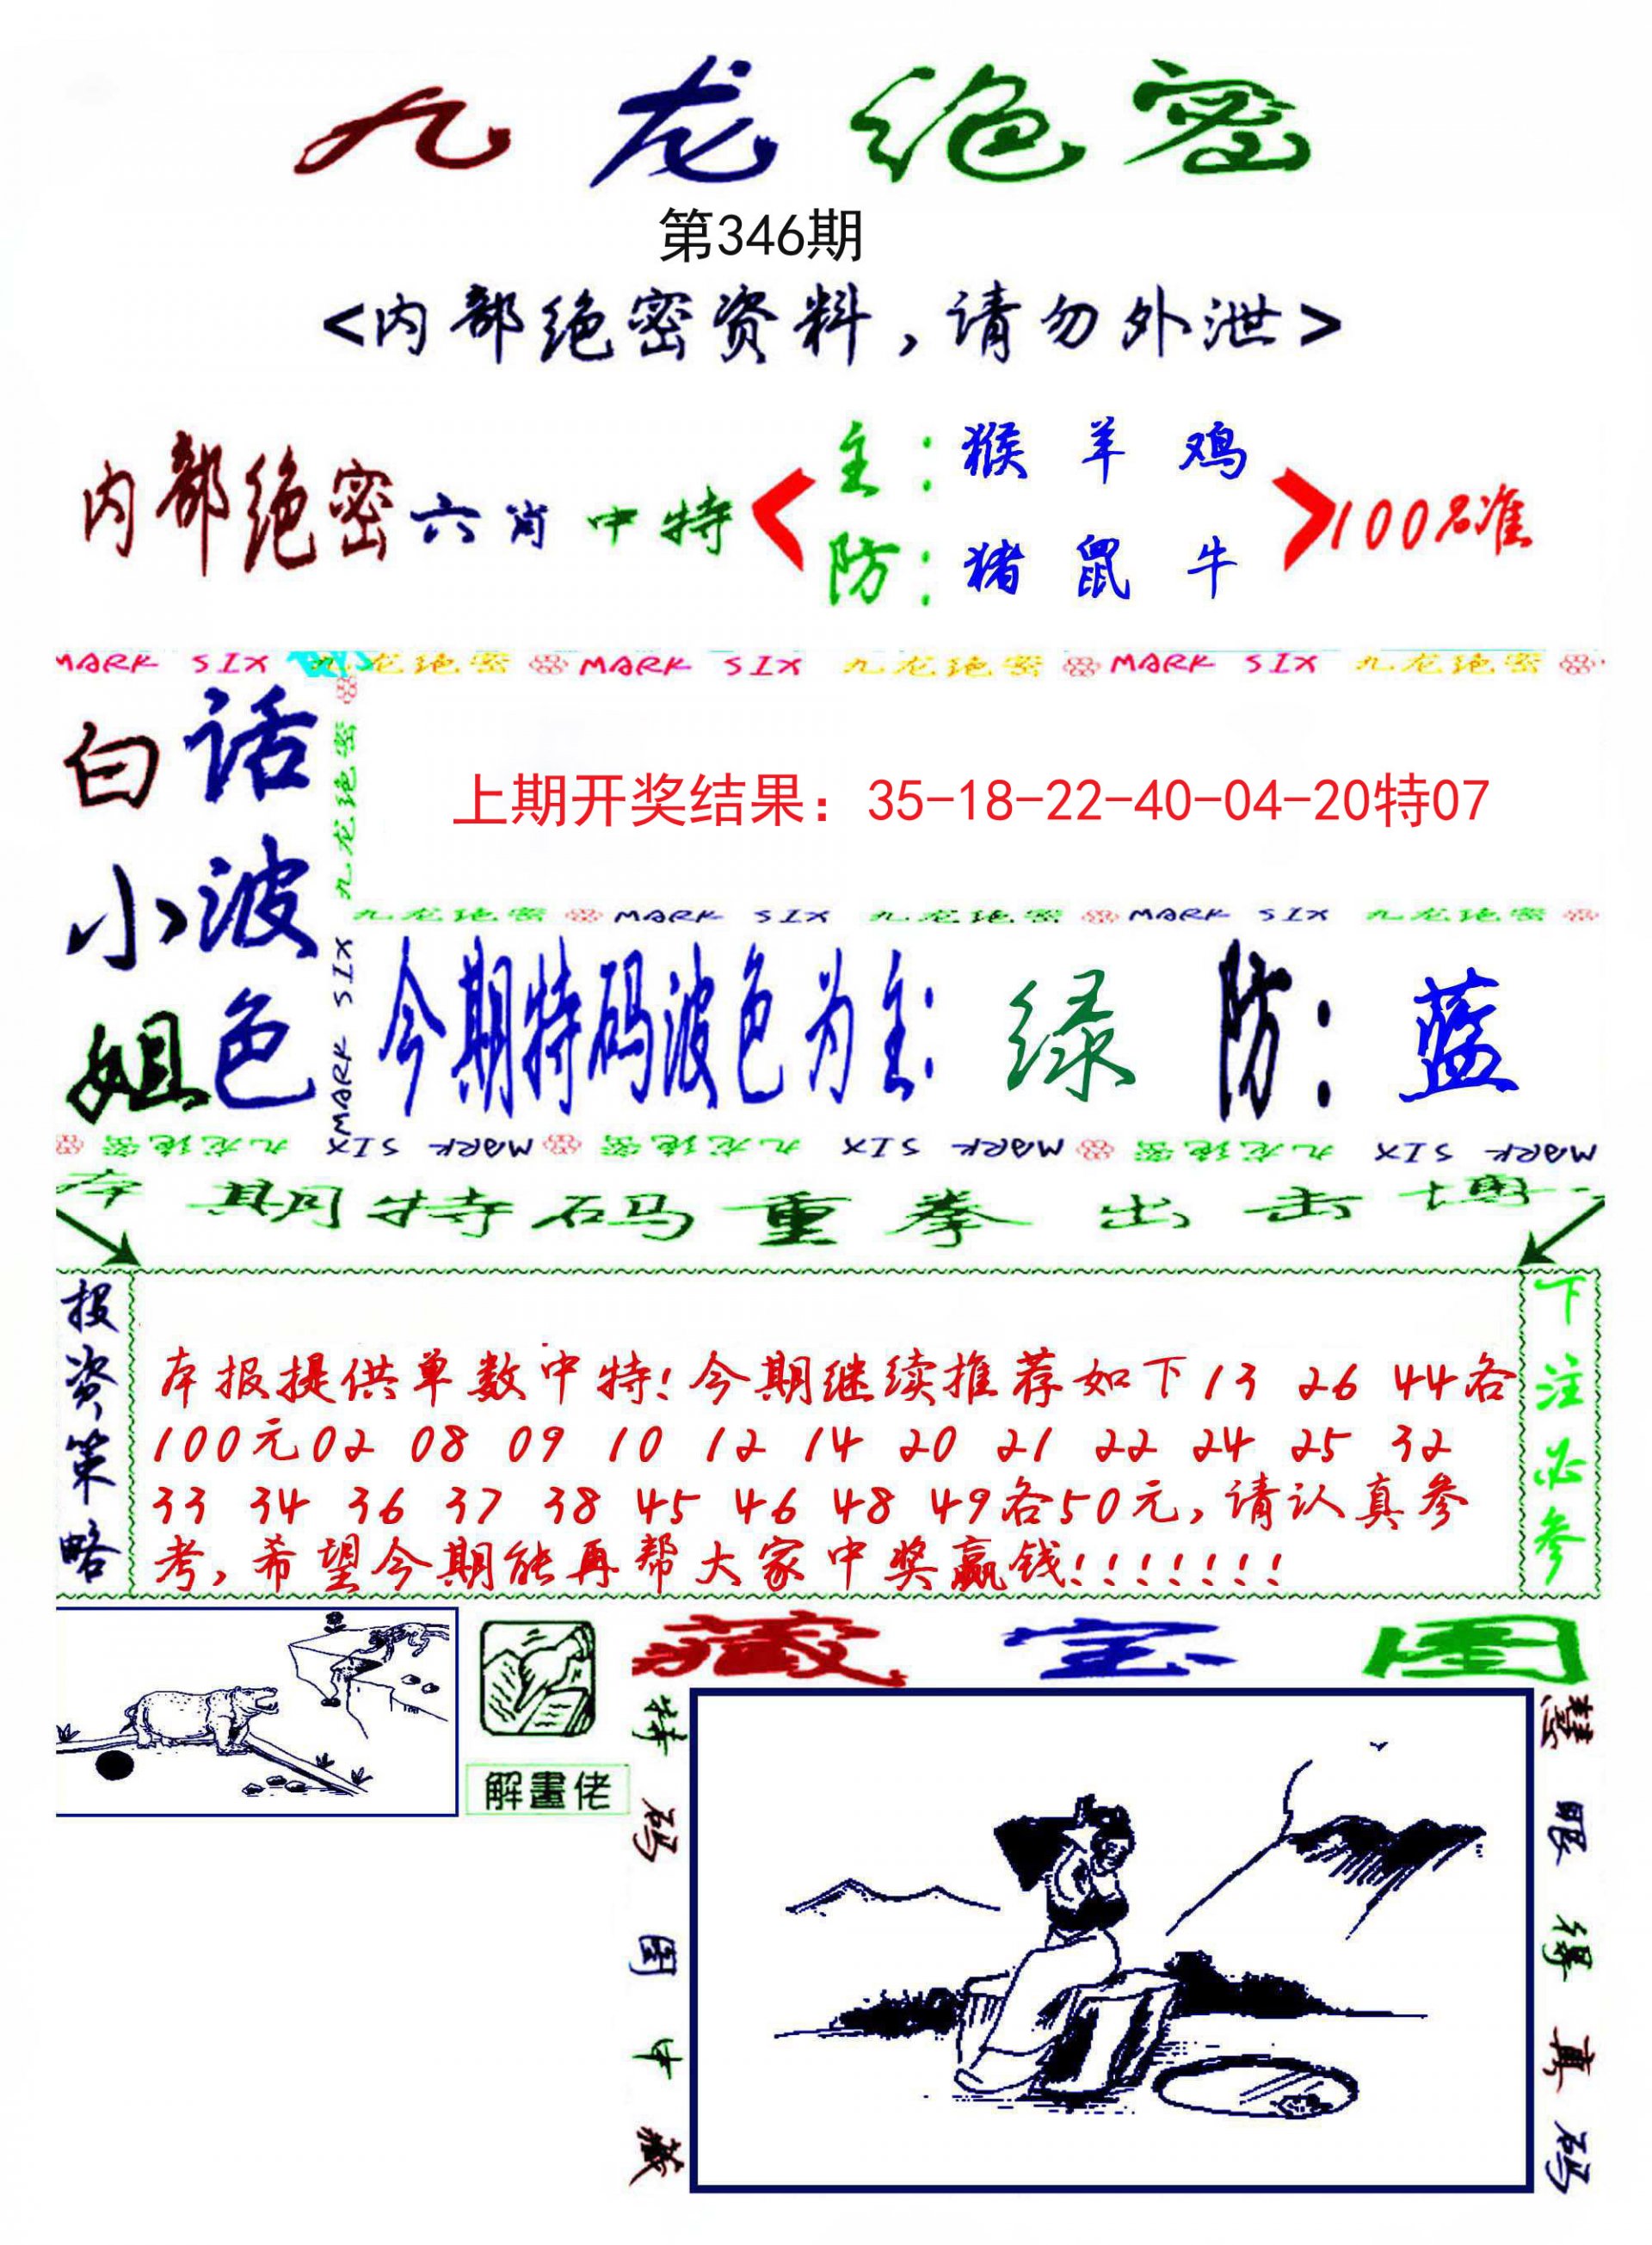 九龙绝密
第346期
<内部绝密资料,请勿外泄>
内部绝密六肖中特
主:猴 羊 鸡
防:猪 鼠 牛
100%准
MARK SIX 九龙绝密 MARK SIX 九龙绝密 MARK SIX 九龙绝密
白话
小波
姐色
九龙绝密 MARK SIX
上期开奖结果:35-18-22-40-04-20特07
九龙绝密 MARK SIX 九龙绝密 MARK SIX 九龙绝密
今期特码波色为主:绿 防:蓝
MARK SIX 九龙绝密 MARK SIX 九龙绝密 MARK SIX 九龙绝密
本期特码重拳出击博
投资策略
本报提供单数中特!今期继续推荐如下13 26 44各
100元02 08 09 10 12 14 20 21 22 24 25 32
33 34 36 37 38 45 46 48 49各50元,请认真参
考,希望今期能再帮大家中奖赢钱!!!!!!!
下注必参
解畫佬
藏宝图
特码图中藏
慧眼得真码